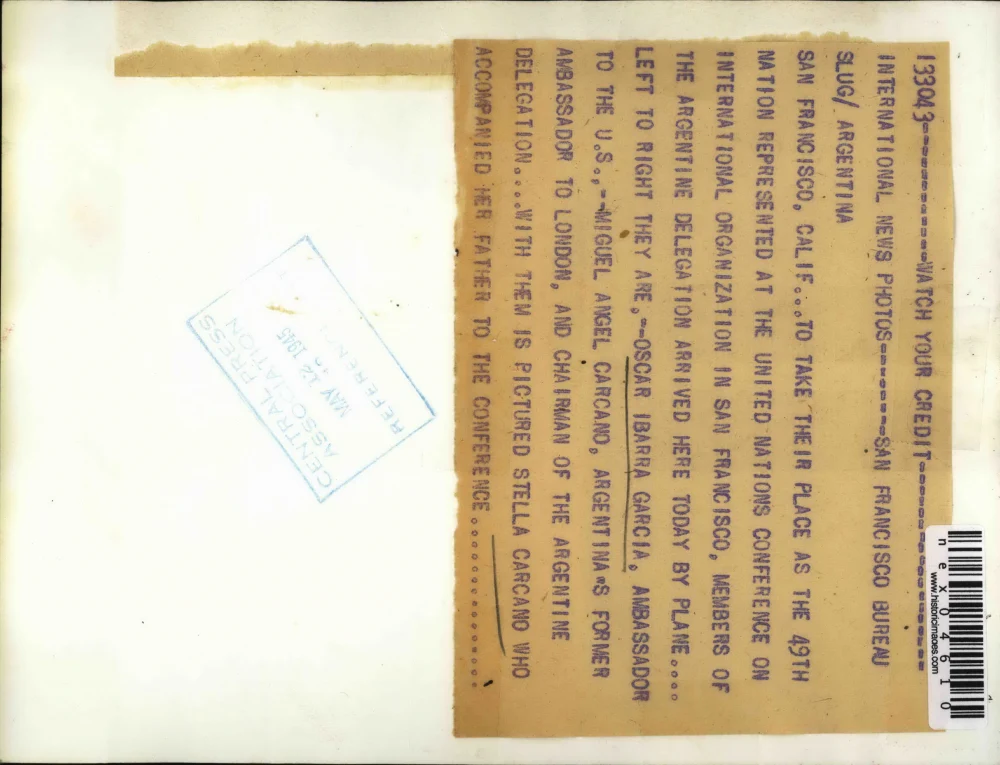 133043--------------WATCH YOUR CREDIT--------------------
INTERNATIONAL NEWS PHOTOS---------SAN FRANCISCO BUREAU
SLUG/ ARGENTINA
SAN FRANCISCO, CALIF...TO TAKE THEIR PLACE AS THE 49TH
NATION REPRESENTED AT THE UNITED NATIONS CONFERENCE ON
INTERNATIONAL ORGANIZATION IN SAN FRANCISCO, MEMBERS OF
THE ARGENTINE DELEGATION ARRIVED HERE TODAY BY PLANE....
LEFT TO RIGHT THEY ARE,--OSCAR IBARRA GARCIA, AMBASSADOR
TO THE U.S.,--MIGUEL ANGEL CARCANO, ARGENTINA"S FORMER
AMBASSADOR TO LONDON, AND CHAIRMAN OF THE ARGENTINE
DELEGATION....WITH THEM IS PICTURED STELLA CARCANO WHO
ACCOMPANIED HER FATHER TO THE CONFERENCE...............
REFERENCE
MAY 12 1945
CENTRAL PRESS
ASSOCIATION
www.historicimages.com
nex04610